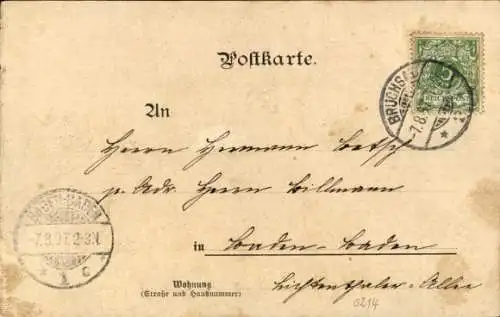 Postkarte.
An
Herrn Hermann Betsch
p. Adr. Herrn Billmann
in Baden-Baden
Wohnung
(Straße und Hausnummer)
Lichtenthaler-Allee
0214
BRUCHSAL
7.8.97
BADEN-BADEN
7.8.97.2-3N
* 1 c